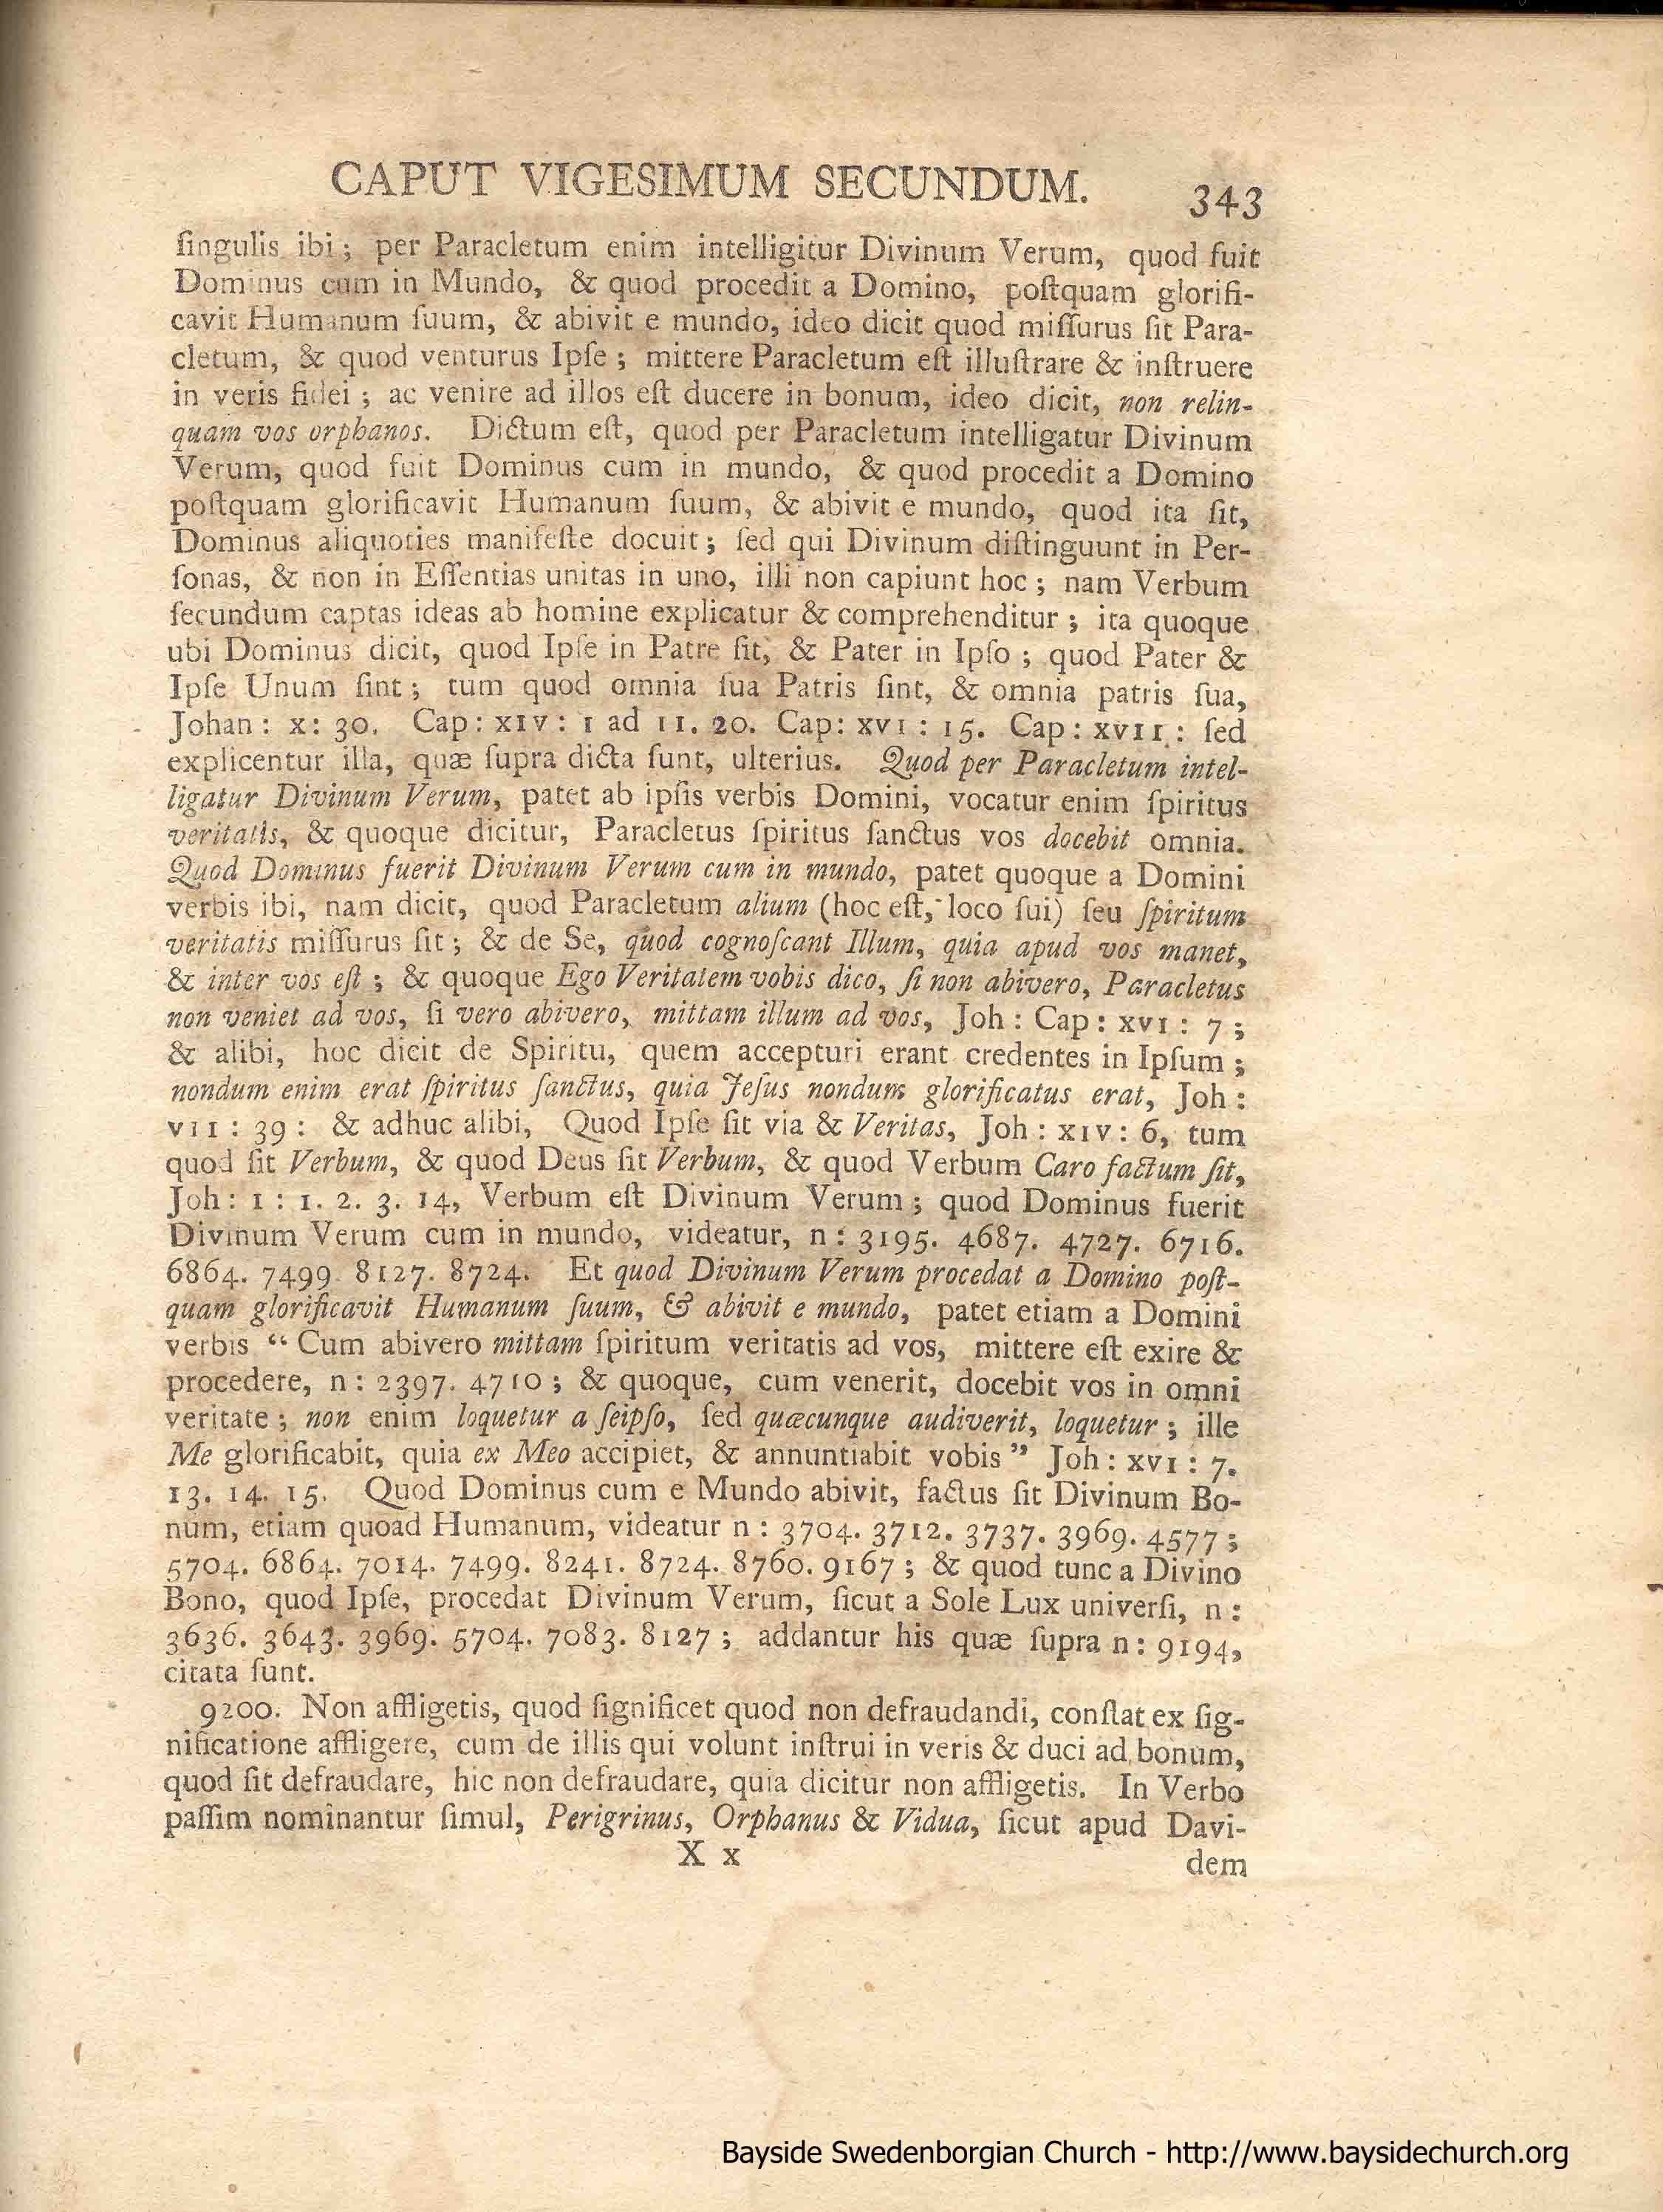 CAPUT VIGESIMUM SECUNDUM. 343
ſingulis ibi; per Paracletum enim intelligitur Divinum Verum, quod fuit
Dominus cum in Mundo, & quod procedit a Domino, poſtquam glorifi-
cavit Humanum ſuum, & abivit e mundo, ideo dicit quod miſſurus ſit Para-
cletum, & quod venturus Ipſe; mittere Paracletum eſt illuſtrare & inſtruere
in veris fidei; ac venire ad illos eſt ducere in bonum, ideo dicit, non relin-
quam vos orphanos. Dictum eſt, quod per Paracletum intelligatur Divinum
Verum, quod fuit Dominus cum in mundo, & quod procedit a Domino
poſtquam glorificavit Humanum ſuum, & abivit e mundo, quod ita ſit,
Dominus aliquoties manifeſte docuit; ſed qui Divinum diſtinguunt in Per-
ſonas, & non in Eſſentias unitas in uno, illi non capiunt hoc; nam Verbum
ſecundum captas ideas ab homine explicatur & comprehenditur; ita quoque
ubi Dominus dicit, quod Ipſe in Patre ſit, & Pater in Ipſo; quod Pater &
Ipſe Unum ſint; tum quod omnia ſua Patris ſint, & omnia patris ſua,
Johan: X: 30. Cap: XIV: 1 ad 11. 20. Cap: XVI: 15. Cap: XVII: ſed
explicentur illa, quæ ſupra dicta ſunt, ulterius. Quod per Paracletum intel-
ligatur Divinum Verum, patet ab ipſis verbis Domini, vocatur enim ſpiritus
veritatis, & quoque dicitur, Paracletus ſpiritus ſanctus vos docebit omnia.
Quod Dominus fuerit Divinum Verum cum in mundo, patet quoque a Domini
verbis ibi, nam dicit, quod Paracletum alium (hoc eſt, loco ſui) ſeu ſpiritum
veritatis miſſurus ſit; & de Se, quod cognoſcant Illum, quia apud vos manet,
& inter vos eſt; & quoque Ego Veritatem vobis dico, ſi non abivero, Paracletus
non veniet ad vos, ſi vero abivero, mittam illum ad vos, Joh: Cap: XVI: 7;
& alibi, hoc dicit de Spiritu, quem accepturi erant credentes in Ipſum;
nondum enim erat ſpiritus ſanctus, quia Jeſus nondum glorificatus erat, Joh:
VII: 39: & adhuc alibi, Quod Ipſe ſit via & Veritas, Joh: XIV: 6, tum
quod ſit Verbum, & quod Deus ſit Verbum, & quod Verbum Caro factum ſit,
Joh: I: 1. 2. 3. 14, Verbum eſt Divinum Verum; quod Dominus fuerit
Divinum Verum cum in mundo, videatur, n: 3195. 4687. 4727. 6716.
6864. 7499. 8127. 8724. Et quod Divinum Verum procedat a Domino poſt-
quam glorificavit Humanum ſuum, & abivit e mundo, patet etiam a Domini
verbis “ Cum abivero mittam ſpiritum veritatis ad vos, mittere eſt exire &
procedere, n: 2397. 4710; & quoque, cum venerit, docebit vos in omni
veritate; non enim loquetur a ſeipſo, ſed quæcunque audiverit, loquetur; ille
Me glorificabit, quia ex Meo accipiet, & annuntiabit vobis ” Joh: XVI: 7.
13. 14. 15. Quod Dominus cum e Mundo abivit, factus ſit Divinum Bo-
num, etiam quoad Humanum, videatur n: 3704. 3712. 3737. 3969. 4577;
5704. 6864. 7014. 7499. 8241. 8724. 8760. 9167; & quod tunc a Divino
Bono, quod Ipſe, procedat Divinum Verum, ſicut a Sole Lux univerſi, n:
3636. 3643. 3969. 5704. 7083. 8127; addantur his quæ ſupra n: 9194,
citata ſunt.
9200. Non affligetis, quod ſignificet quod non defraudandi, conſtat ex ſig-
nificatione affligere, cum de illis qui volunt inſtrui in veris & duci ad bonum,
quod ſit defraudare, hic non defraudare, quia dicitur non affligetis. In Verbo
paſſim nominantur ſimul, Perigrinus, Orphanus & Vidua, ſicut apud Davi-
X x dem
Bayside Swedenborgian Church - http://www.baysidechurch.org